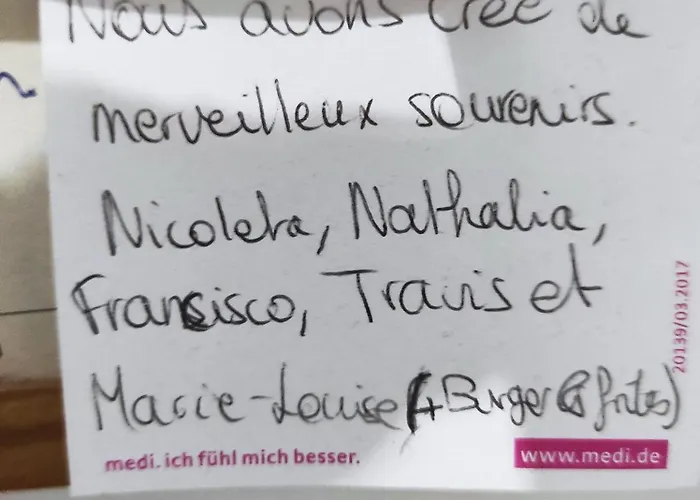 Nous avons créé de
merveilleux souvenirs.
Nicoleta, Nathalia,
Fransisco, Travis et
Marie-Louise (+ Burger & frites)
medi. ich fühl mich besser.
www.medi.de
20139/03.2017